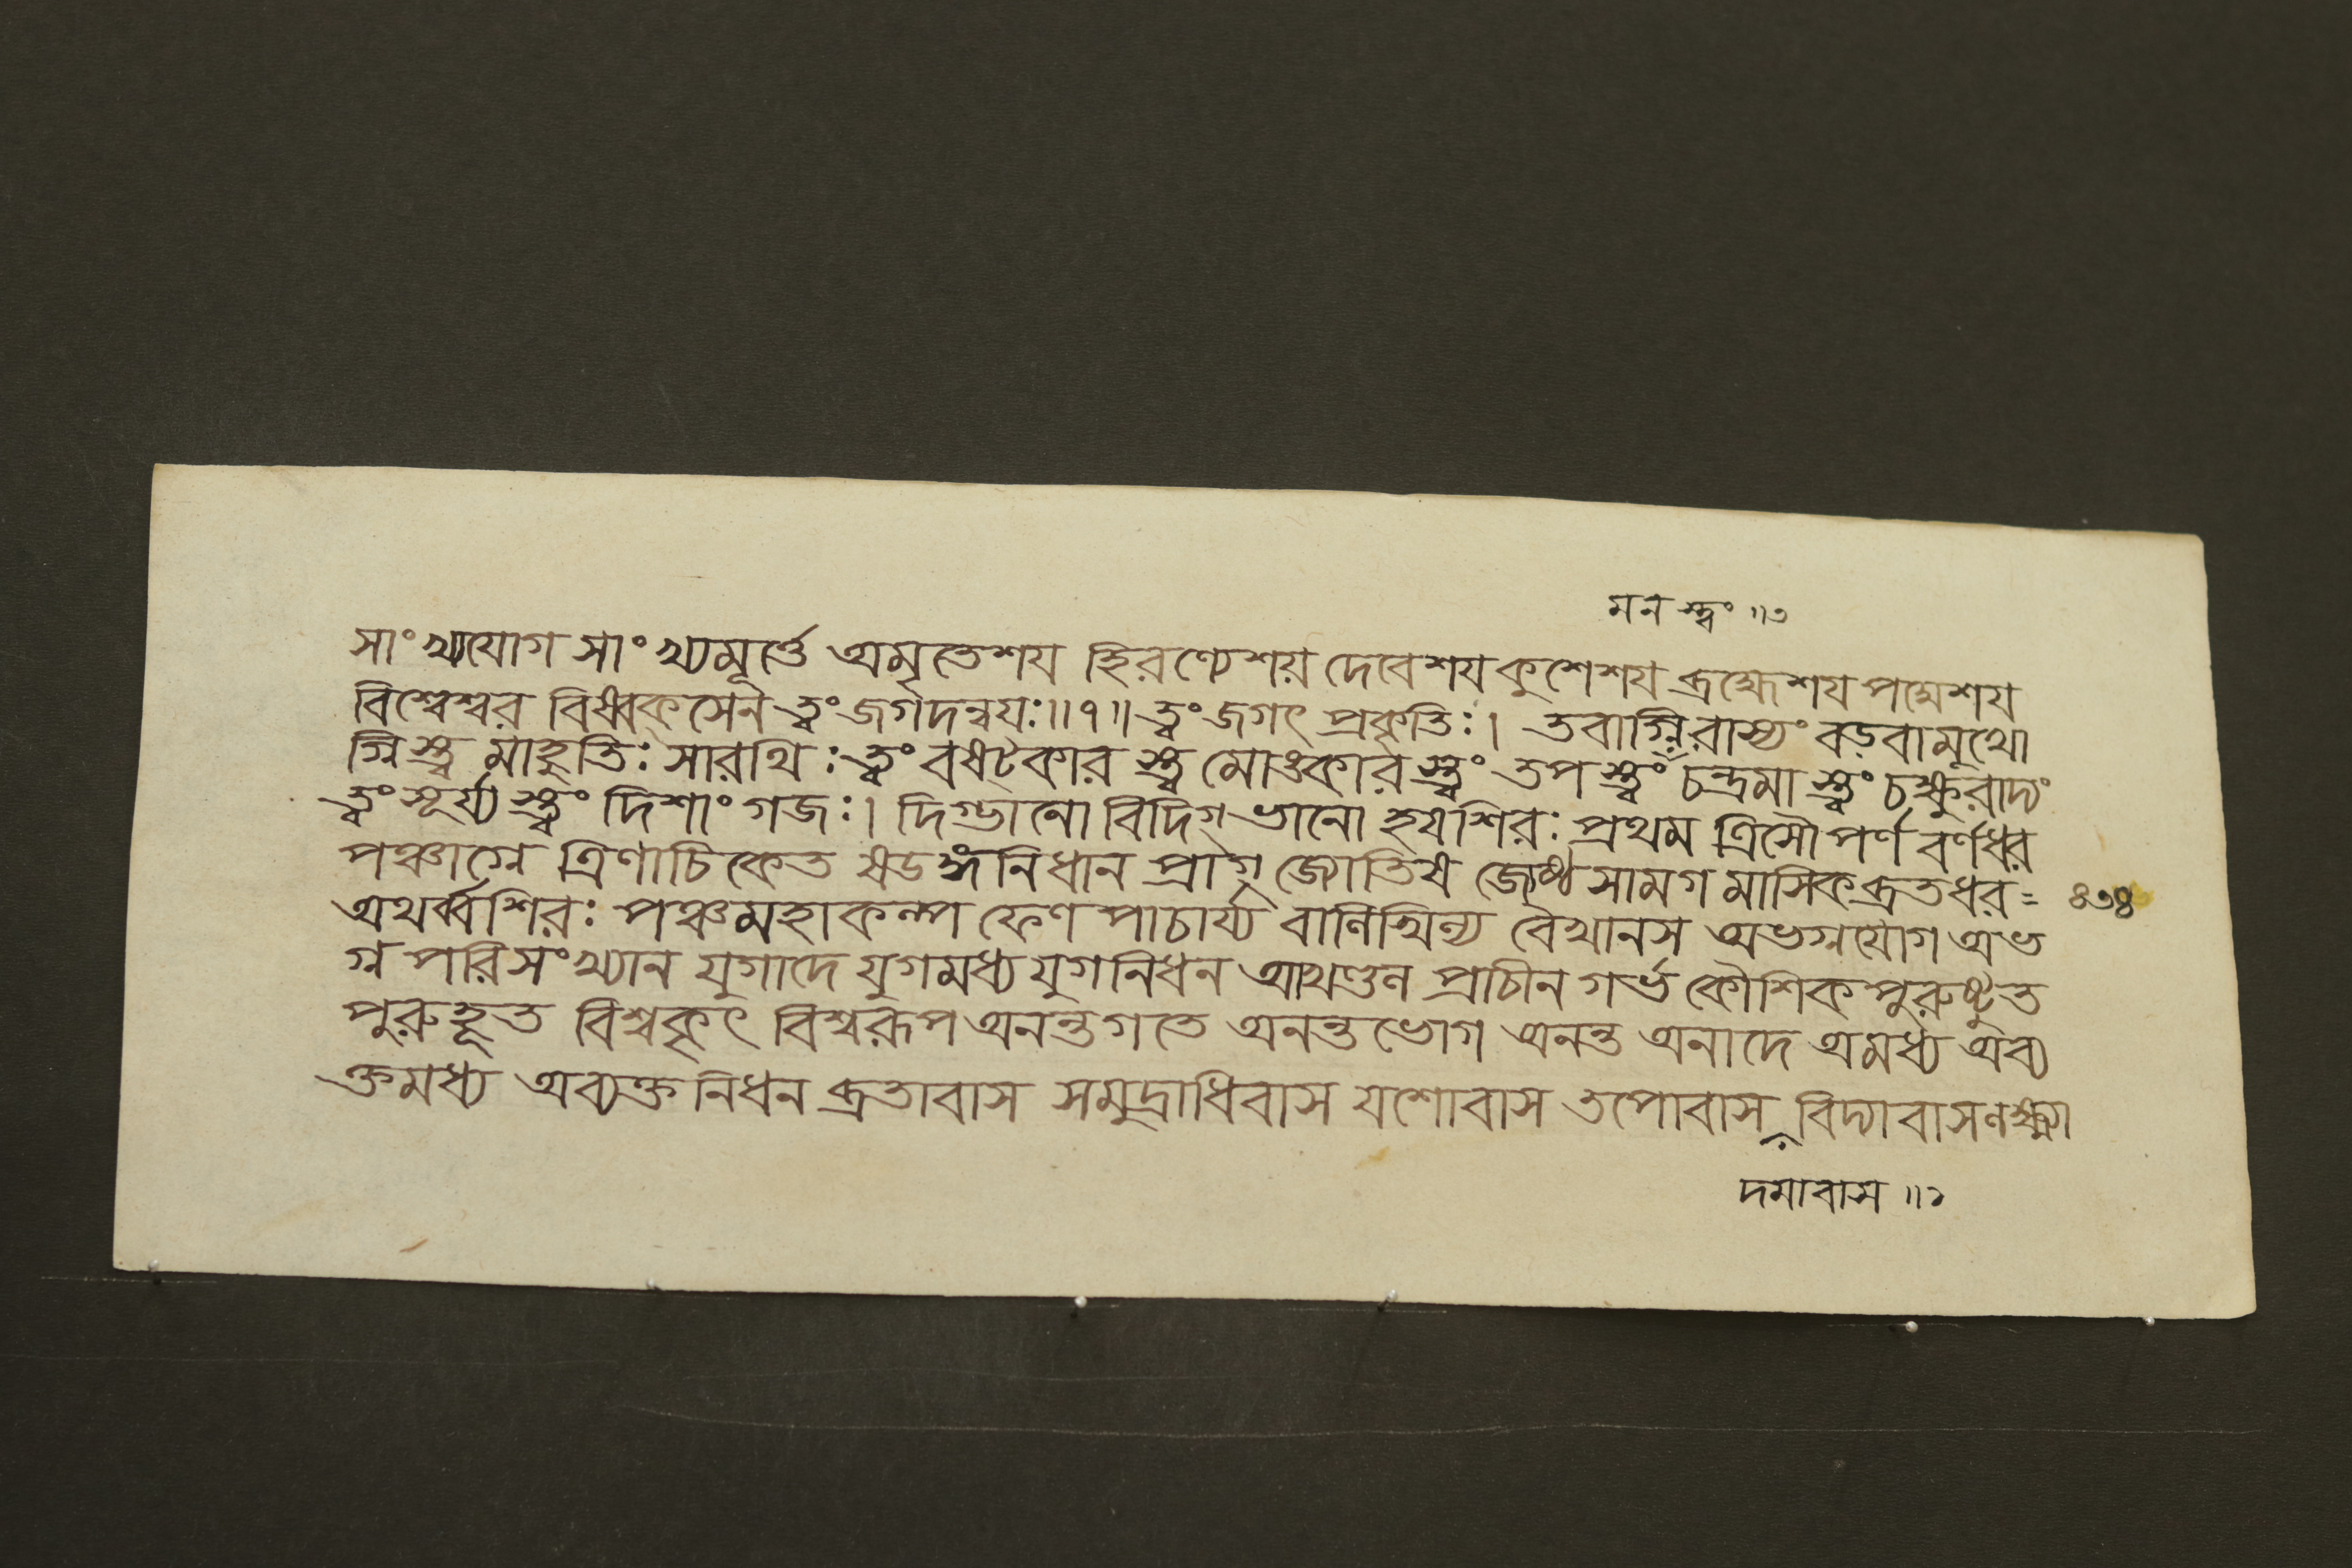 মনস্ত্বং ॥৩
সাংখ্যযোগ সাংখ্যমূর্ত্তে অমৃতেশয হিরণ্যেশয় দেবেশয কুশেশয ব্রহ্মেশয পদ্মেশয
বিশ্বেশ্বর বিষ্বক্সেন ত্বং জগদন্বযঃ॥৭॥ ত্বং জগৎ প্রকৃতিঃ। তবাগ্নিরাস্যং বড়বামুখো
গ্নিস্ত্ব মাহুতিঃ সারথিঃ ত্বং বষট্কার স্ত্ব মোঙ্কারস্ত্বং তপস্ত্বং চন্দ্রমাস্ত্বং চক্ষুরাদ্যং
ত্বং সূর্য্যস্ত্বং দিশাং গজঃ। দিগ্ভানো বিদিগ্ভানো হযশিরঃ প্রথম ত্রিসৌপর্ণ বর্ণধর
পঞ্চাগ্নে ত্রিণাচিকেত ষডঙ্গনিধান প্রাগ্জ্যোতিষ জ্যেষ্ঠসামগ মাসিকব্রতধর=
৪৩৪
অথর্ব্বশিরঃ পঞ্চমহাকল্প ফেণপাচার্য্য বালিখিল্য বৈখানস অভগ্নযোগ অভ
গ্ন পরিসংখ্যান যুগাদে যুগমধ্য যুগনিধন আখণ্ডল প্রাচীনগর্ভ কৌশিক পুরুষ্টুত
পুরুহূত বিশ্বকৃৎ বিশ্বরূপ অনন্তগতে অনন্তভোগ অনন্ত অনাদে অমধ্য অব্য
ক্তমধ্য অব্যক্তনিধন ব্রতাবাস সমুদ্রাধিবাস যশোবাস তপোবাস বিদ্যাবাস লক্ষ্ম্যা
দমাবাস ॥২